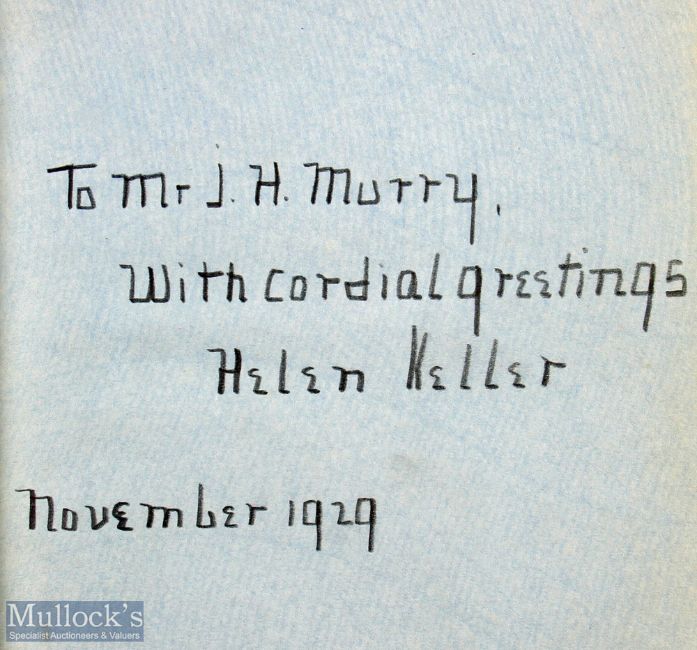 To Mr J. H. Murry,
With cordial greetings
Helen Keller
November 1929
Mullock's
Specialist Auctioneers & Valuers